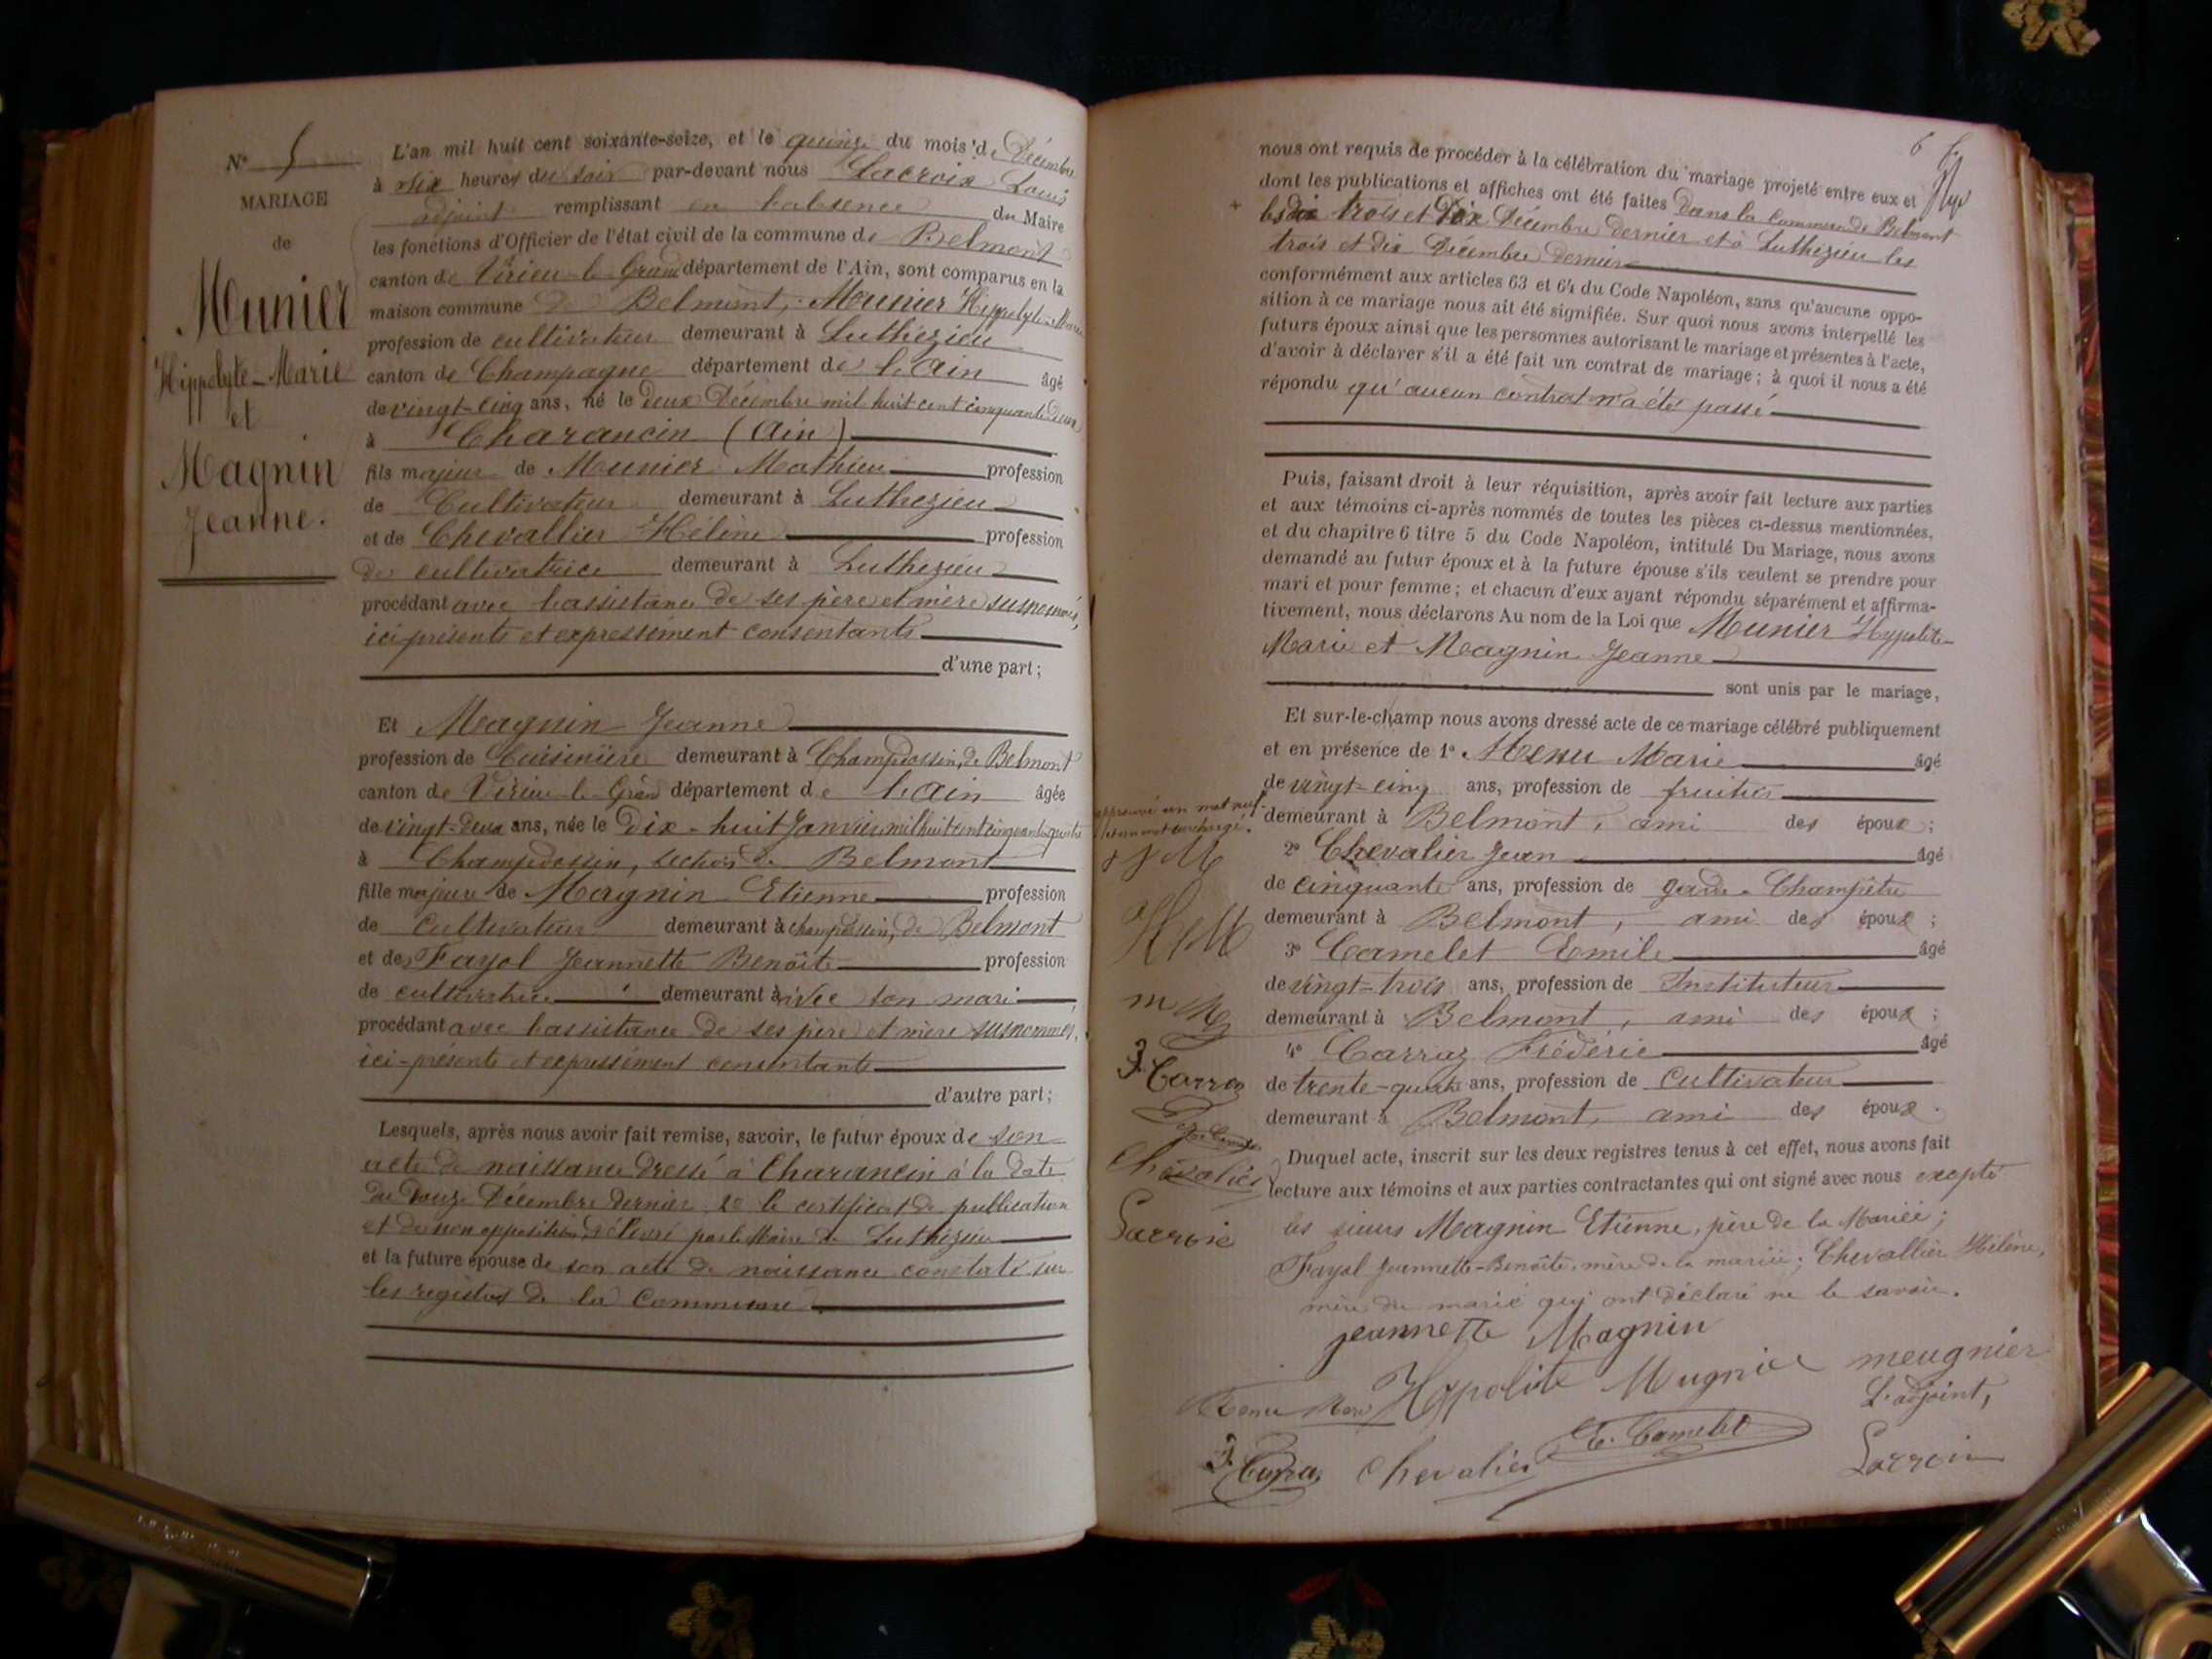 N° 5
MARIAGE
de
Munier
Hippolyte-Marie
et
Magnin
Jeanne.
L'an mil huit cent soixante-seize, et le quinze du mois de Décembre
à six heures du soir par-devant nous Lacroix Louis
adjoint remplissant en l'absence du Maire
les fonctions d'Officier de l'état civil de la commune de Belmont
canton de Virieu-le-Grand département de l'Ain, sont comparus en la
maison commune de Belmont, Munier Hippolyte-Marie
profession de cultivateur demeurant à Luthézieu
canton de Champagne département de l'Ain âgé
de vingt-cinq ans, né le deux Décembre mil huit cent cinquante deux
à Charancin (Ain)
fils majeur de Munier Mathieu profession
de Cultivateur demeurant à Luthezieu
et de Chevallier Hélène profession
de cultivatrice demeurant à Luthezieu
procédant avec l'assistance de ses père et mère susnommés,
ici présents et expressément consentants
d'une part;
Et Magnin Jeanne
profession de Cuisinière demeurant à Champdossin, de Belmont
canton de Virieu-le-Grand département de l'Ain âgée
de vingt-deux ans, née le Dix-huit Janvier mil huit cent cinquante quatre
à Champdossin, section de Belmont
fille majeure de Magnin Etienne profession
de Cultivateur demeurant à Champdossin, de Belmont
et de Fayol Jeannette Benoîte profession
de cultivatrice demeurant avec son mari
procédant avec l'assistance de ses père et mère susnommés,
ici-présents et expressément consentants
d'autre part;
Lesquels, après nous avoir fait remise, savoir, le futur époux de son
acte de naissance dressé à Charancin à la date
du douze Décembre dernier 2° le certificat de publication
et de non opposition, délivré par le Maire de Luthézieu
et la future épouse de son acte de naissance constaté sur
les registres de la Commune
6
nous ont requis de procéder à la célébration du mariage projeté entre eux et
dont les publications et affiches ont été faites dans la commune de Belmont
les trois et Dix Décembre dernier et à Luthezieu les
trois et dix Décembre dernier
conformément aux articles 63 et 64 du Code Napoléon, sans qu'aucune oppo-
sition à ce mariage nous ait été signifiée. Sur quoi nous avons interpellé les
futurs époux ainsi que les personnes autorisant le mariage et présentes à l'acte,
d'avoir à déclarer s'il a été fait un contrat de mariage; à quoi il nous a été
répondu qu'aucun contrat n'a été passé
Puis, faisant droit à leur réquisition, après avoir fait lecture aux parties
et aux témoins ci-après nommés de toutes les pièces ci-dessus mentionnées,
et du chapitre 6 titre 5 du Code Napoléon, intitulé Du Mariage, nous avons
demandé au futur époux et à la future épouse s'ils veulent se prendre pour
mari et pour femme; et chacun d'eux ayant répondu séparément et affirma-
tivement, nous déclarons Au nom de la Loi que Munier Hyppolite-
Marie et Magnin Jeanne
sont unis par le mariage,
Et sur-le-champ nous avons dressé acte de ce mariage célébré publiquement
et en présence de 1° Menu Marie âgé
de vingt-cinq ans, profession de fruitier
demeurant à Belmont, ami des époux;
2° Chevalier Jean âgé
de cinquante ans, profession de garde-Champêtre
demeurant à Belmont, ami des époux;
3° Camelet Emile âgé
de vingt-trois ans, profession de Instituteur
demeurant à Belmont, ami des époux;
4° Carraz Frédéric âgé
de trente-quatre ans, profession de Cultivateur
demeurant à Belmont, ami des époux.
Duquel acte, inscrit sur les deux registres tenus à cet effet, nous avons fait
lecture aux témoins et aux parties contractantes qui ont signé avec nous excepté
les sieurs Magnin Etienne, père de la Mariée;
Fayol Jeannette-Benoîte, mère de la mariée; Chevallier Hélène,
mère du marié qui ont déclaré ne le savoir.
approuvé un mot nul
J M
H M
m M
F. Carraz
Chevalier
Lacroix
jeannette Magnin
Menu Marie Hypolite Mugnier meugnier
L'adjoint,
F. Carraz Chevalier E. Camelet Lacroix